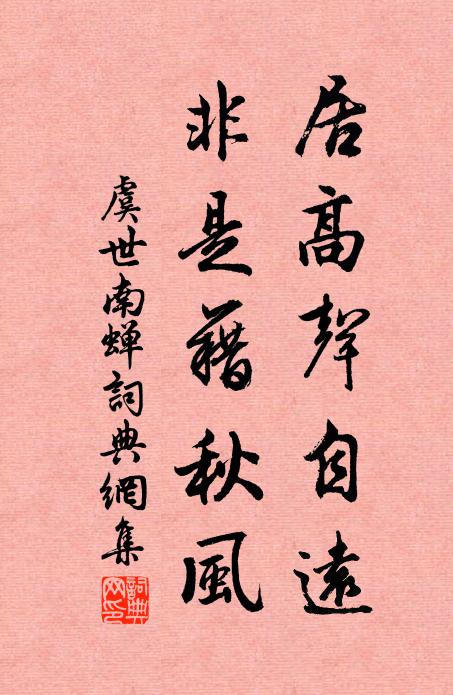 居高聲自遠
非是藉秋風
虞世南蝉詞典網集
詞典網印